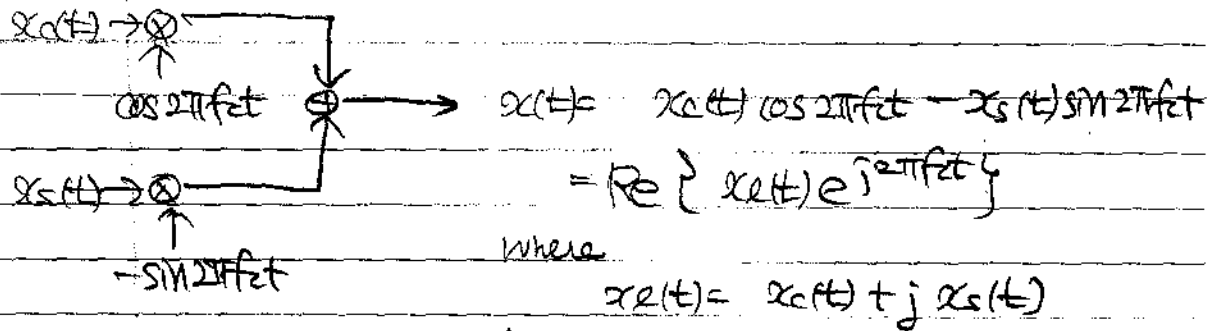 xc(t) → ⊗
cos 2πfct ⊕ → x(t) = xc(t) cos 2πfct - xs(t) sin 2πfct
xs(t) → ⊗ = Re { xℓ(t) e^{j2πfct} }
-sin 2πfct where
xℓ(t) = xc(t) + j xs(t)